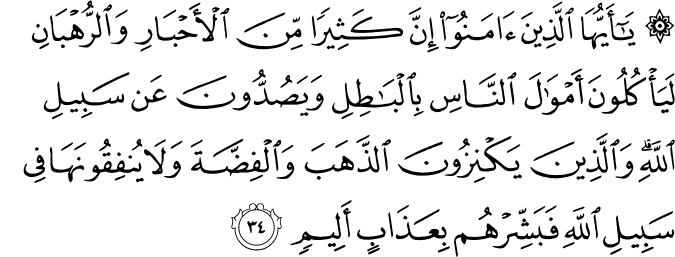 ۞ يَٰٓأَيُّهَا ٱلَّذِينَ ءَامَنُوٓا۟ إِنَّ كَثِيرًا مِّنَ ٱلْأَحْبَارِ وَٱلرُّهْبَانِ
لَيَأْكُلُونَ أَمْوَٰلَ ٱلنَّاسِ بِٱلْبَٰطِلِ وَيَصُدُّونَ عَن سَبِيلِ
ٱللَّهِ ۗ وَٱلَّذِينَ يَكْنِزُونَ ٱلذَّهَبَ وَٱلْفِضَّةَ وَلَا يُنفِقُونَهَا فِى
سَبِيلِ ٱللَّهِ فَبَشِّرْهُم بِعَذَابٍ أَلِيمٍ ٣٤